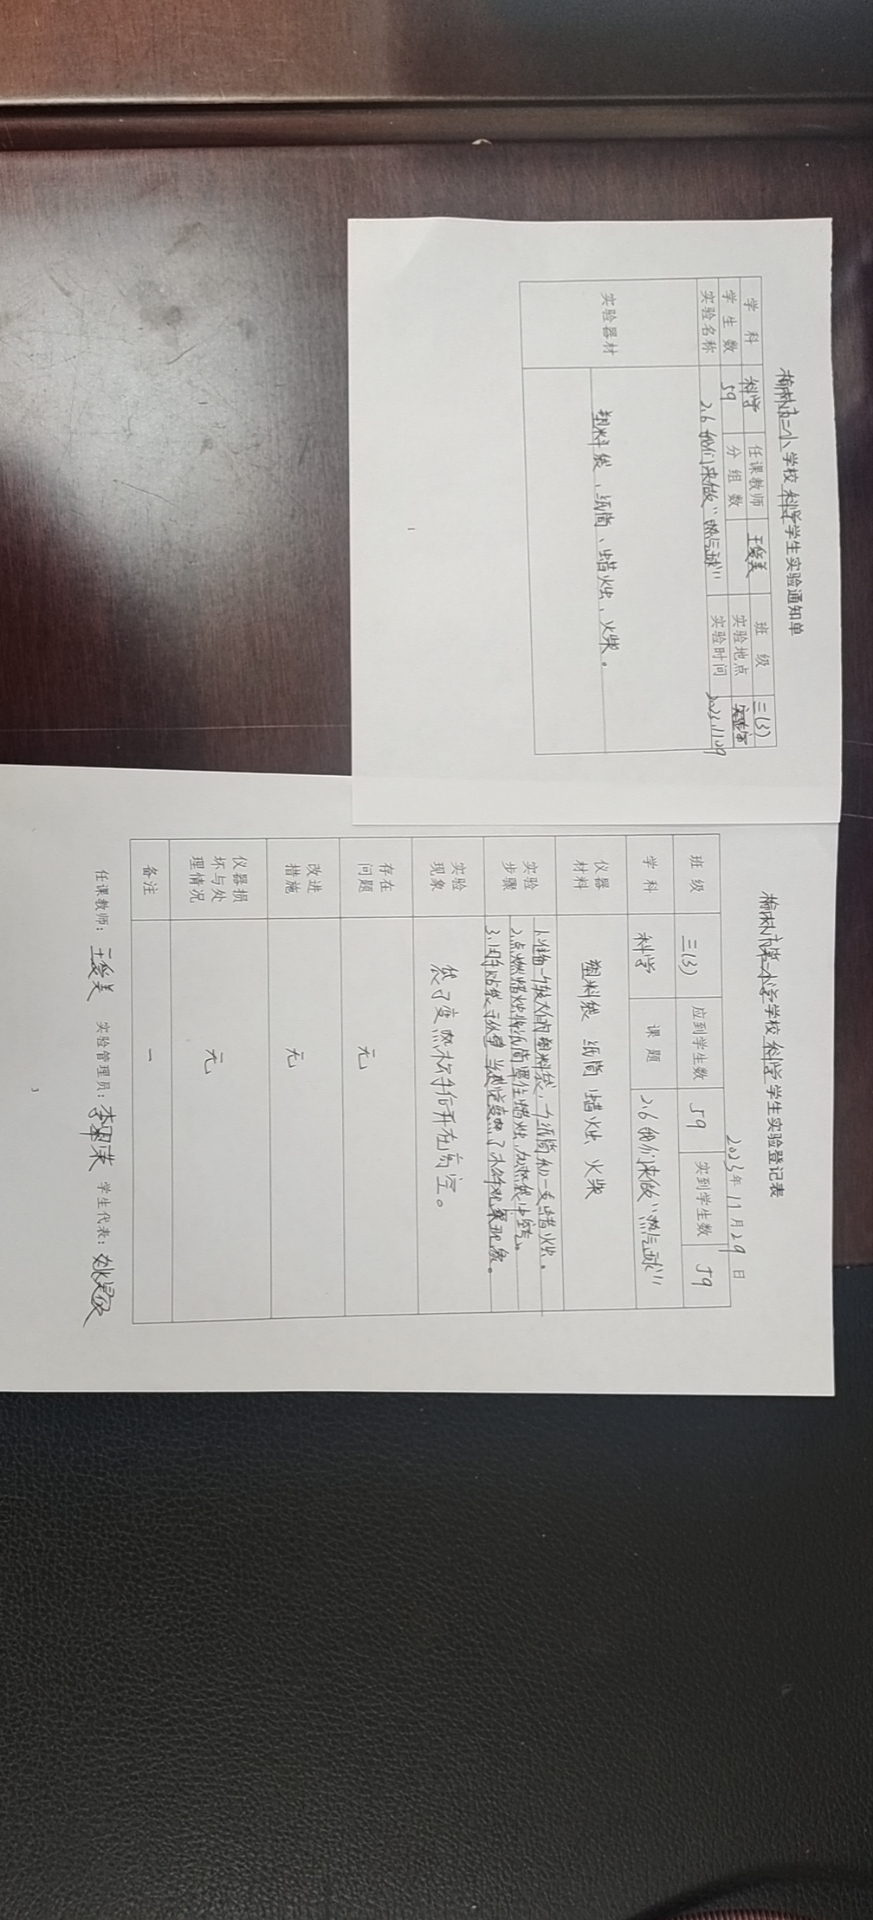 榆林市二小学校科学学生实验通知单
学 科 科学 任课教师 王爱美 班 级 三(3)
学 生 数 59 分 组 数 实验地点 实验室
实验名称 2.6 我们来做“热气球” 实验时间 2023.11.29
实验器材 塑料袋、纸筒、蜡烛、火柴。
1
榆林市第二小学学校科学学生实验登记表
2023年11月29日
班 级 三(3) 应到学生数 59 实到学生数 59
学 科 科学 课 题 2.6 我们来做“热气球”
仪器
材料
塑料袋 纸筒 蜡烛 火柴
实验
步骤
1.准备一个较大的塑料袋,一个纸筒和一支蜡烛。
2.点燃蜡烛将纸筒罩住蜡烛,加热袋中空气。
3.用手贴袋子外壁 当感觉变热了 观察现象。
实验
现象
袋子变热松手后升在高空。
存在
问题
无
改进
措施
无
仪器损
坏与处
理情况
无
备注 一
任课教师: 王爱美 实验管理员: 李 学生代表:
3